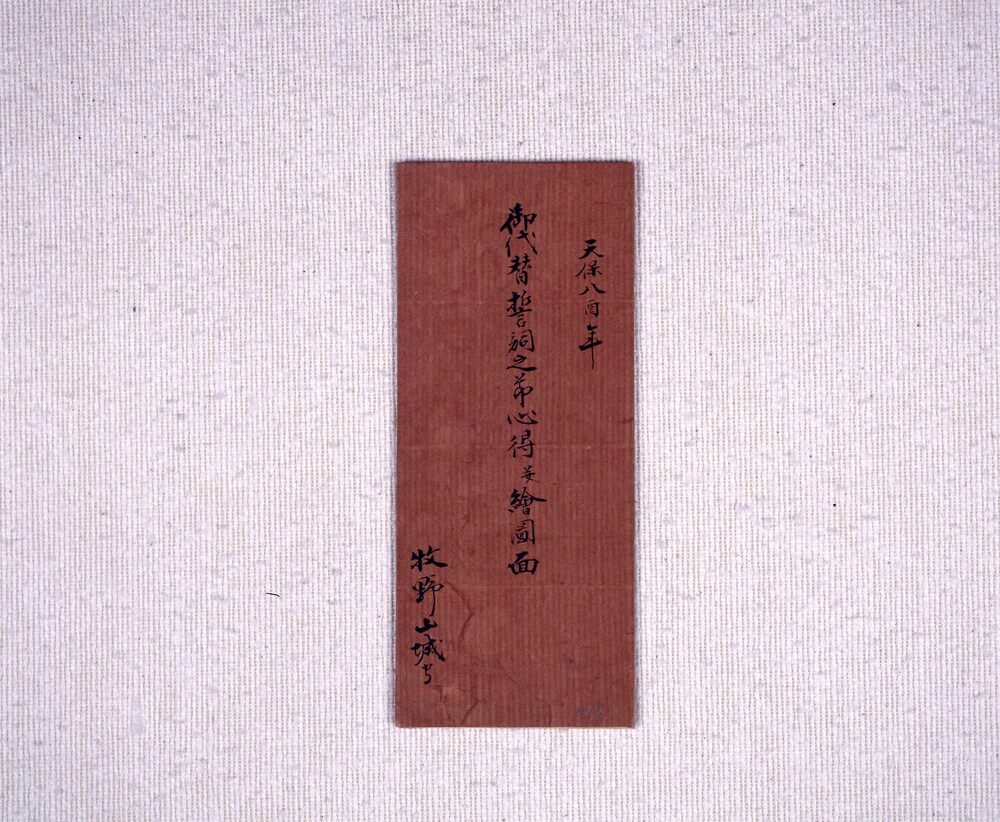 天保八酉年
御代替誓詞之節心得並繪圖面
牧野山城守